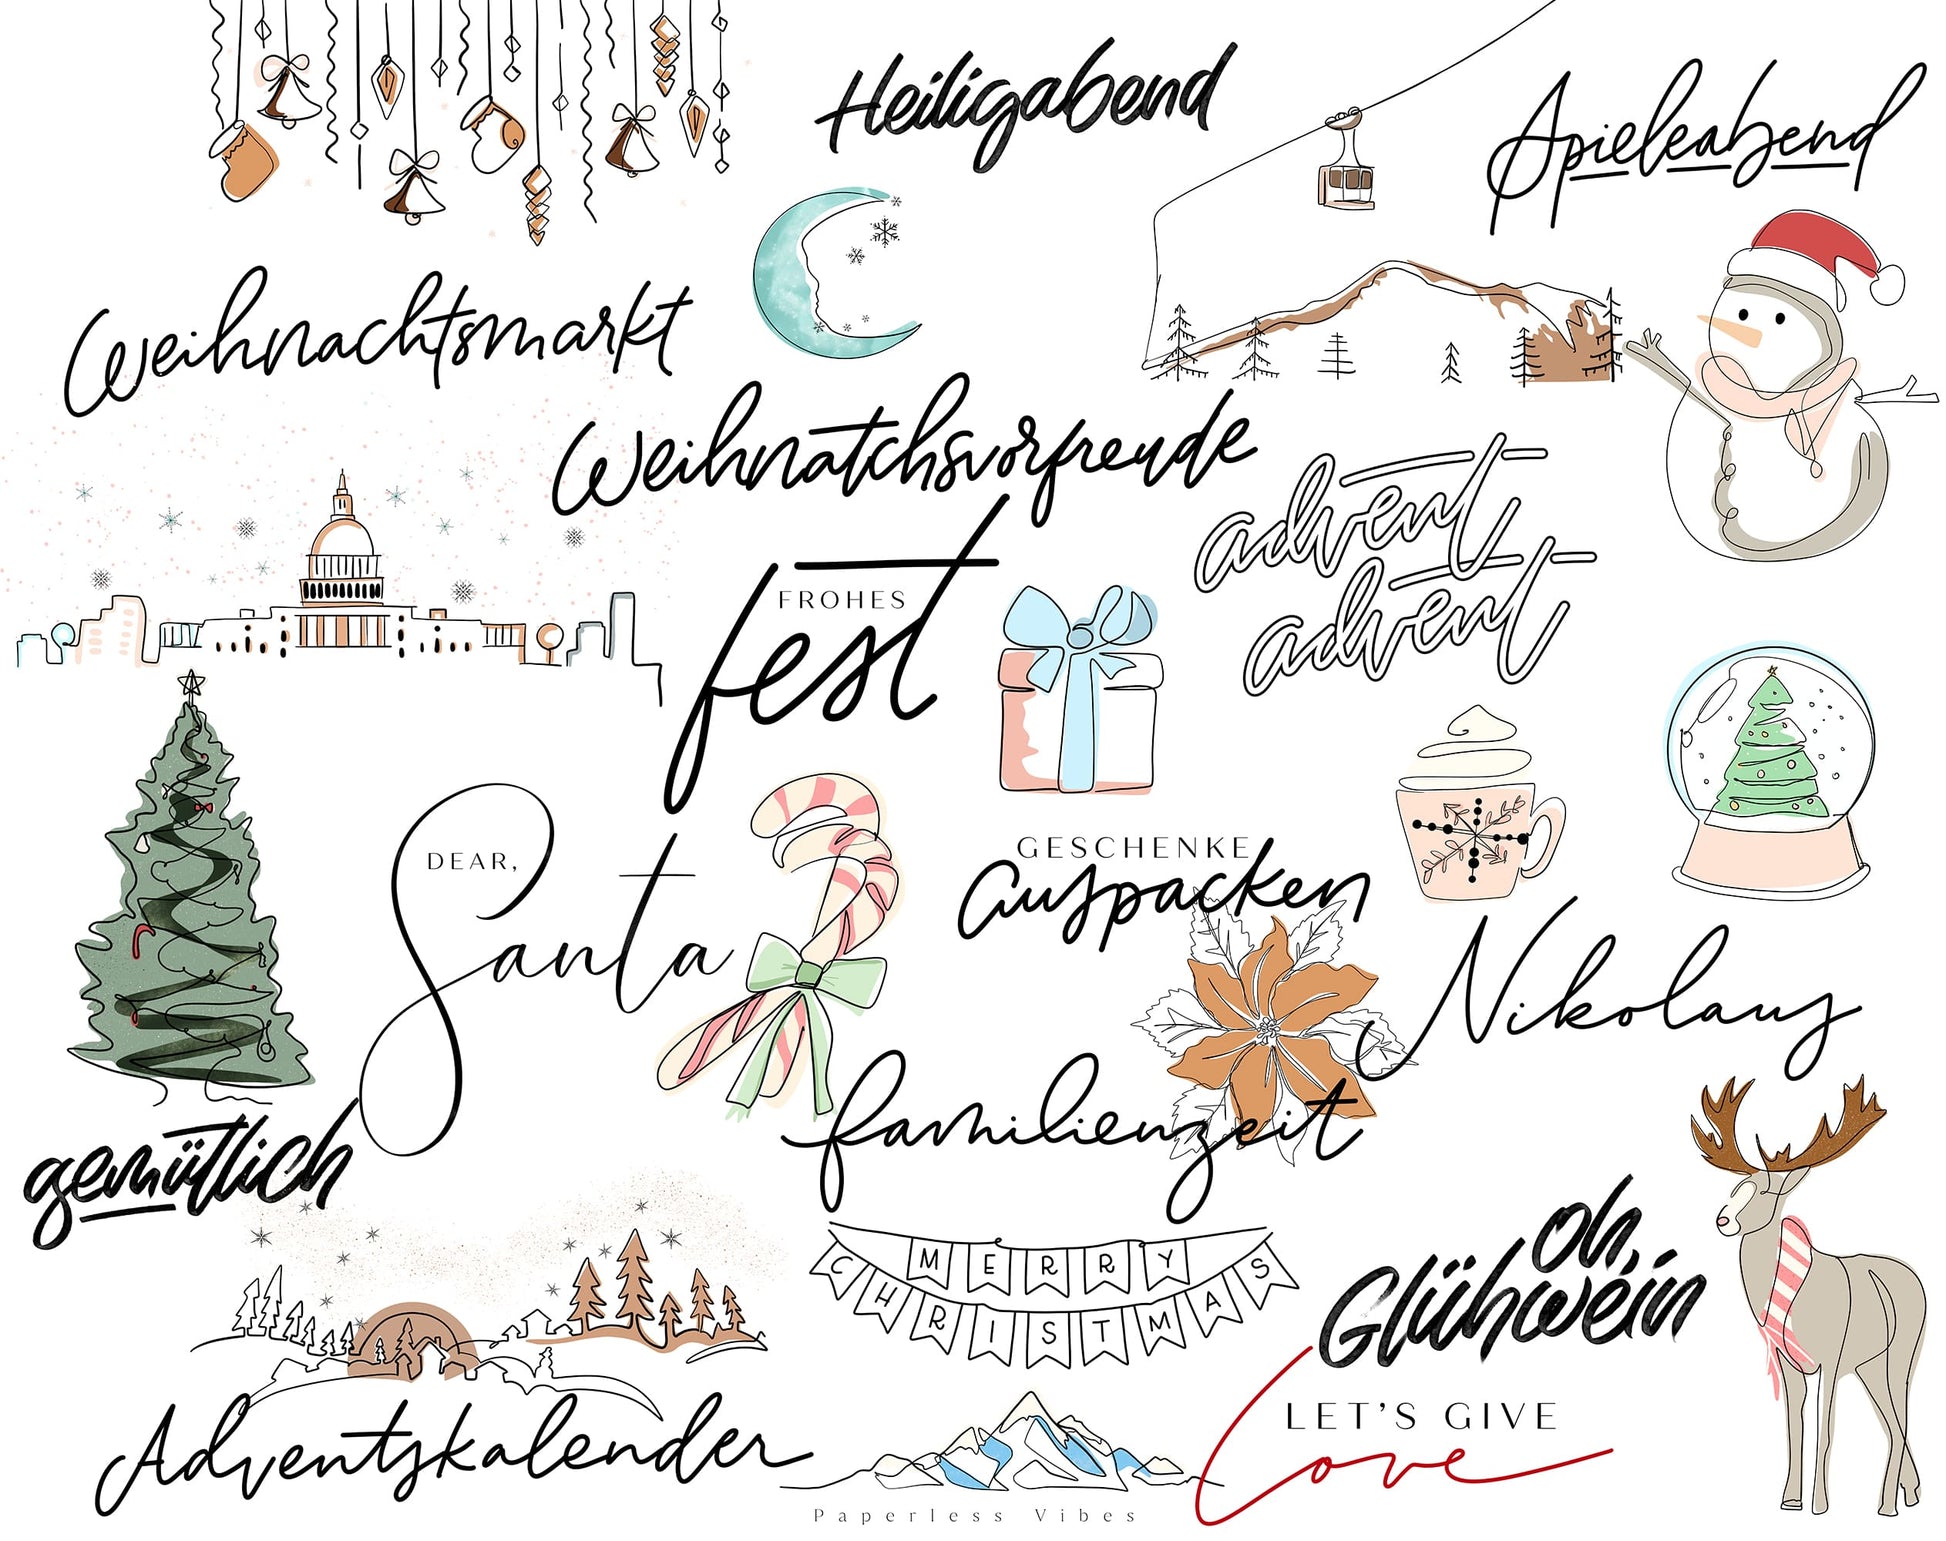 Heiligabend
Spieleabend
Weihnachtsmarkt
Weihnatchsvorfreude
advent
advent
FROHES
fest
DEAR,
Santa
GESCHENKE
auspacken
Nikolaus
familienzeit
gemütlich
MERRY
CHRISTMAS
oh,
Glühwein
Adventskalender
LET'S GIVE
Love
Paperless Vibes